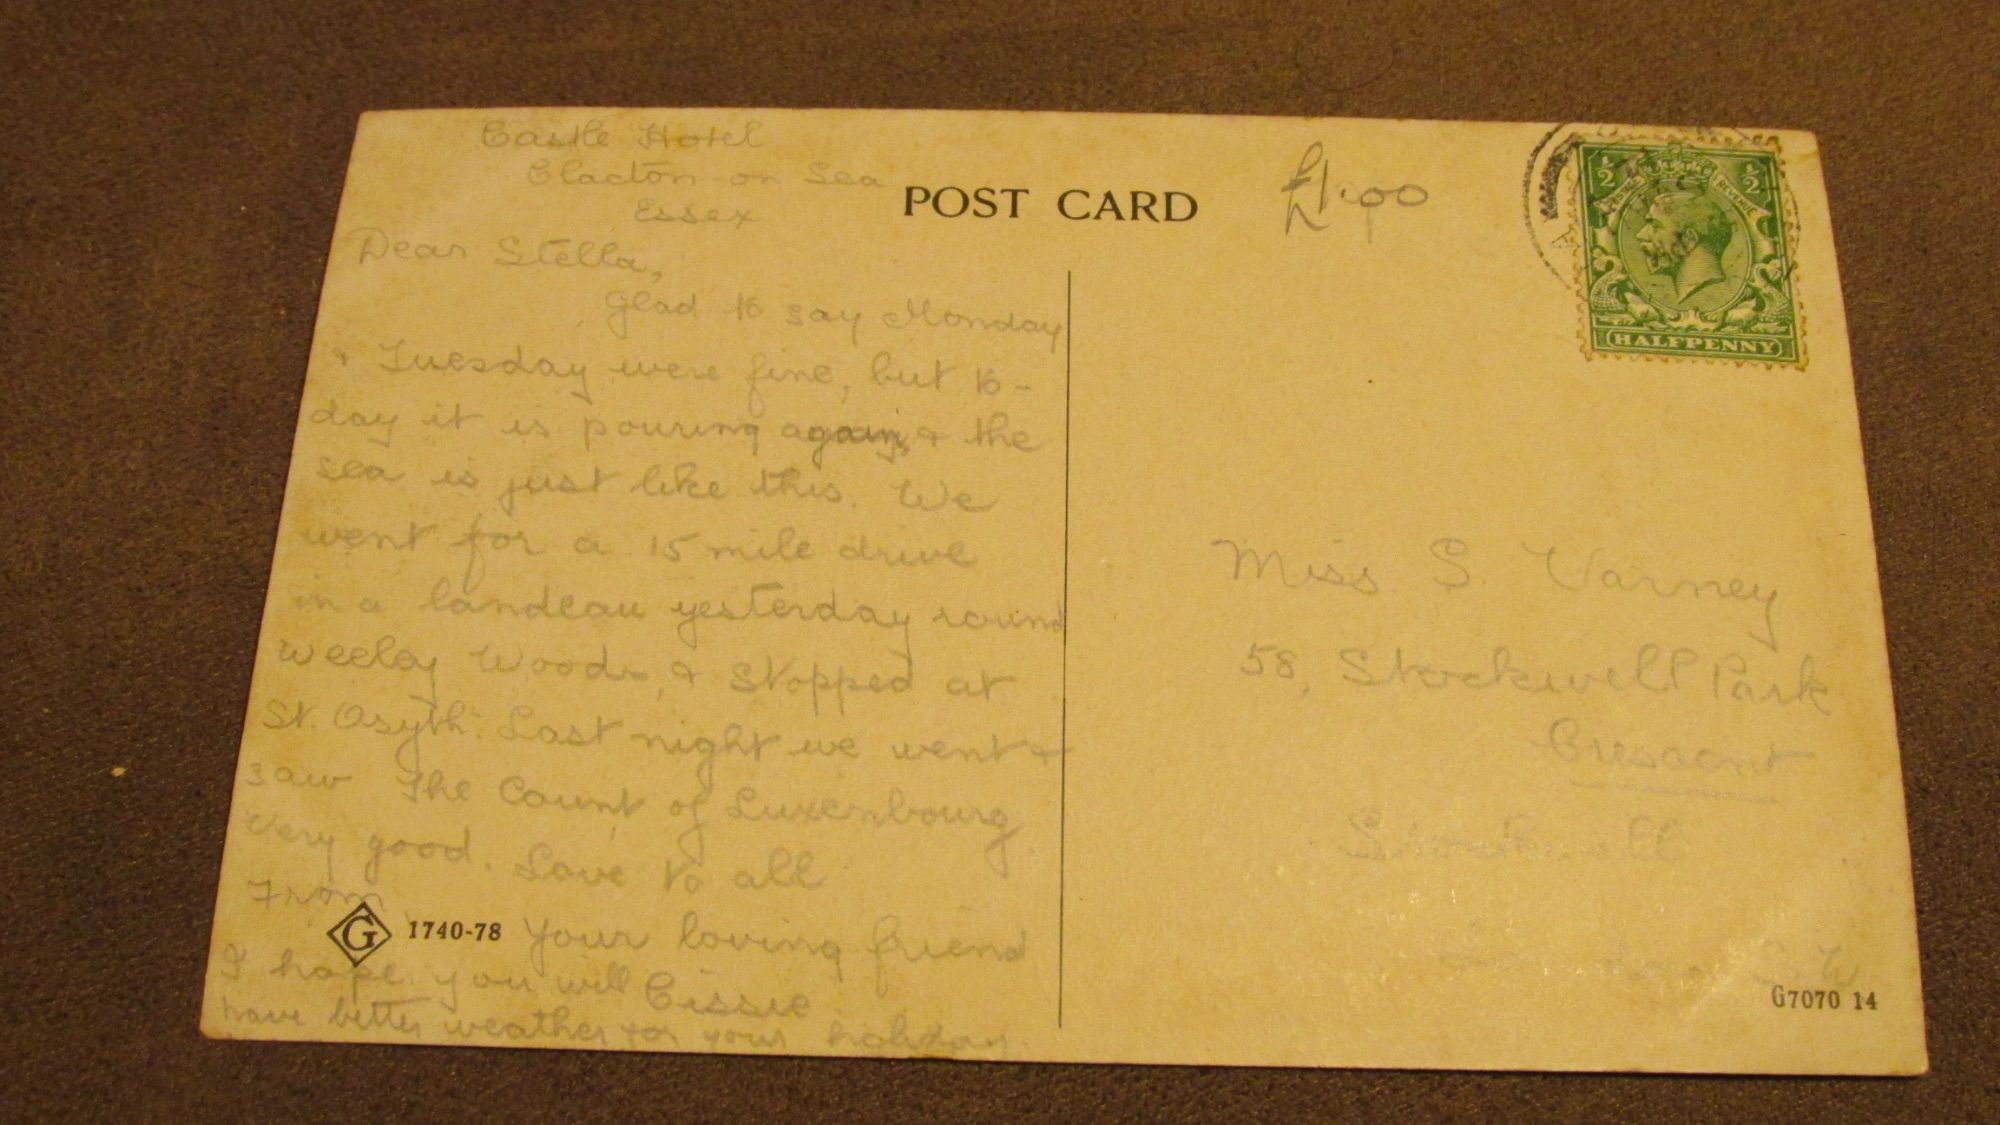 Castle Hotel
Clacton on Sea
Essex
Dear Stella,
Glad to say Monday
& Tuesday were fine, but to-
day it is pouring again, & the
sea is just like this. We
went for a 15 mile drive
in a landeau yesterday round
Weeley Woods, & stopped at
St. Osyth. Last night we went &
saw The Count of Luxenbourg
Very good. Love to all
From
Your loving friend
Cissie
I hope you will
have better weather for your holiday.
G 1740-78
POST CARD
£1.00
½ ½
POSTAGE REVENUE
HALFPENNY
Miss S. Varney
58, Stockwell Park
Crescent
Stockwell
S.W.
G7070 14